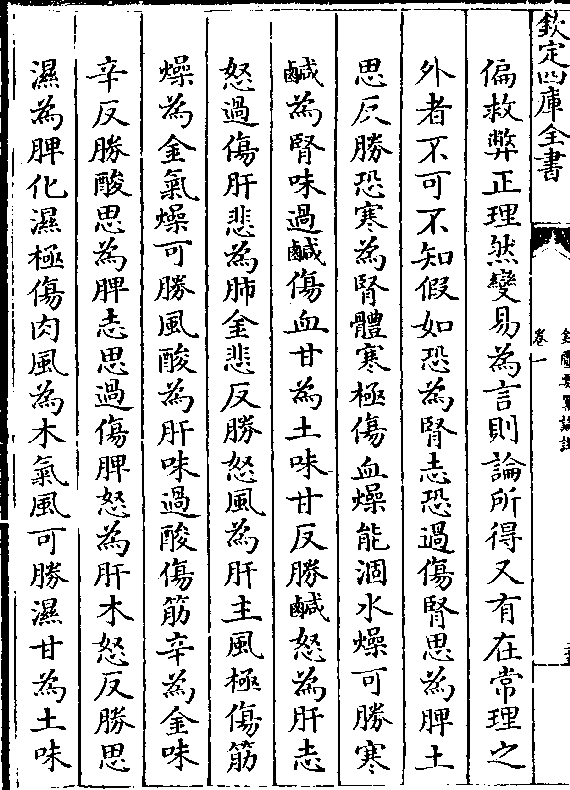 欽定四庫全書
卷一
偏救弊正理然變易為言則論所得又有在常理之
外者不可不知假如恐為腎志恐過傷腎思為脾土
思反勝恐寒為腎體寒極傷血燥能涸水燥可勝寒
鹹為腎味過鹹傷血甘為土味甘反勝鹹怒為肝志
怒過傷肝悲為肺金悲反勝怒風為肝主風極傷筋
燥為金氣燥可勝風酸為肝味過酸傷筋辛為金味
辛反勝酸思為脾志思過傷脾怒為肝木怒反勝思
濕為脾化濕極傷肉風為木氣風可勝濕甘為土味